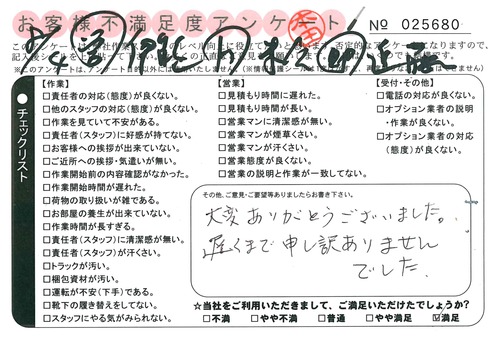 お客様不満足度アンケート
No 025680
チェックリスト
【作業】
□責任者の対応(態度)が良くない。
□他のスタッフの対応(態度)が良くない。
□作業を見ていて不安がある。
□責任者(スタッフ)に好感が持てない。
□お客様への挨拶が出来ていない。
□ご近所への挨拶・気遣いが無い。
□作業開始前の内容確認がなかった。
□作業開始時間が遅れた。
□荷物の取り扱いが雑である。
□お部屋の養生が出来ていない。
□作業時間が長すぎる。
□責任者(スタッフ)に清潔感が無い。
□責任者(スタッフ)が汗くさい。
□トラックが汚い。
□梱包資材が汚い。
□運転が不安(下手)である。
□靴下の履き替えをしてない。
□スタッフにやる気がみられない。
【営業】
□見積もり時間に遅れた。
□見積もり時間が長い。
□営業マンに清潔感が無い。
□営業マンが煙草くさい。
□営業マンが汗くさい。
□営業態度が良くない。
□営業の説明と作業が一致してない。
【受付・その他】
□電話の対応が良くない。
□オプション業者の説明
・作業が良くない。
□オプション業者の対応
(態度)が良くない。
その他、ご意見・ご要望等ありましたらお書き下さい。
大変ありがとうございました。
遅くまで申し訳ありません
でした。
★当社をご利用いただきまして、ご満足いただけたでしょうか?
□不満 □やや不満 □普通 □やや満足 ☑満足